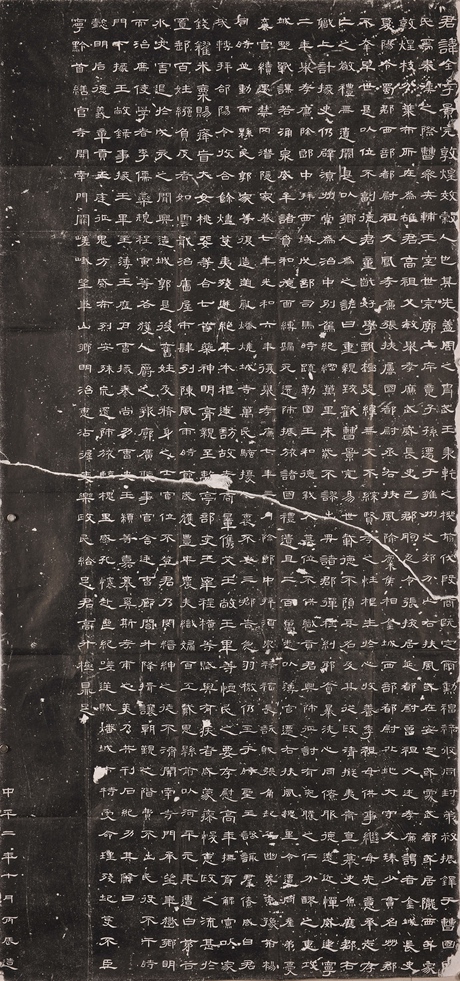 君諱全字景完敦煌效穀人也其先蓋周之胄武王秉乾之機翦伐殷商既定爾勳福祿攸同封弟叔振鐸于曹國因
氏焉秦漢之際曹參夾輔王室世宗廓土斥竟子孫遷于雍州之郊分止右扶風或在安定或處武都或居隴西或家
敦煌枝分葉布所在為雄君高祖父敏舉孝廉武威長史巴郡朐忍令張掖居延都尉曾祖父述孝廉謁者金城長史
夏陽令蜀郡西部都尉祖父鳳孝廉張掖屬國都尉丞右扶風隃麋侯相金城西部都尉北地大守父琫少貫名州郡
不幸早世是以位不副德君童齔好學甄極毖緯無文不綜賢孝之性根生於心收養季祖母供事繼母先意承志存
亡之敬禮無遺闕是以鄉人為之諺曰重親致歡曹景完易世載德不隕其名及其從政清擬夷齊直慕史魚歷郡右
職上計掾史仍辟涼州常為治中別駕紀綱萬里朱紫不謬出典諸郡彈枉糾邪貪暴洗心同僚服德遠近憚威建寧
二年舉孝廉除郎中拜西域戊部司馬時疏勒國王和德弒父篡位不供職貢君興師征討有吮膿之仁分醪之惠攻
城野戰謀若涌泉威牟諸賁和德面縛歸死還師振旅諸國禮遺且二百萬悉以薄官遷右扶風槐里令遭同產弟憂
棄官續遇禁冈潛隱家巷七年光和六年復舉孝廉七年三月除郎中拜酒泉祿福長訞賊張角起兵幽冀兗豫荊楊
同時並動而縣民郭家等復造逆亂燔燒城寺萬民騷擾人裹不安三郡告急羽檄仍至于時聖主諮諏群僚咸曰君
哉轉拜郃陽令收合餘燼芟夷殘迸絕其本根遂訪故老商量俊艾王敞王畢等恤民之要存慰高年撫育鰥寡以家
錢糴米粟賜癃盲大女桃斐等合七首藥神明膏親至離亭部吏王宰程橫等賦與有疾者咸蒙瘳悛惠政之流甚於
置郵百姓繈負反者如雲戢治廧屋市肆列陳風雨時節歲獲豐年農夫織婦百工戴恩縣前以河平元年遭白茅谷
水災害退於戌亥之間興造城郭是後舊姓及脩身之士官位不登君乃閔縉紳之徒不濟開南寺門承望華嶽鄉明
而治庶使學者李儒欒規程寅等各獲人爵之報廓廣聽事官舍廷曹廊閣升降揖讓朝覲之階費不出民役不干時
門下掾王敞錄事掾王畢主薄王歷戶曹掾秦尚功曹史王顓等嘉慕奚斯考甫之美乃共刊石紀功其辭曰
懿明后德義章貢王庭征鬼方威布烈安殊荒還師旅臨槐里感孔懷赴喪紀嗟逆賊燔城市特受命理殘圮芟不臣
寧黔首繕官寺開南門闕嵯峨望華山鄉明治惠沾渥吏樂政民給足君高升極鼎足
中平二年十月丙辰造